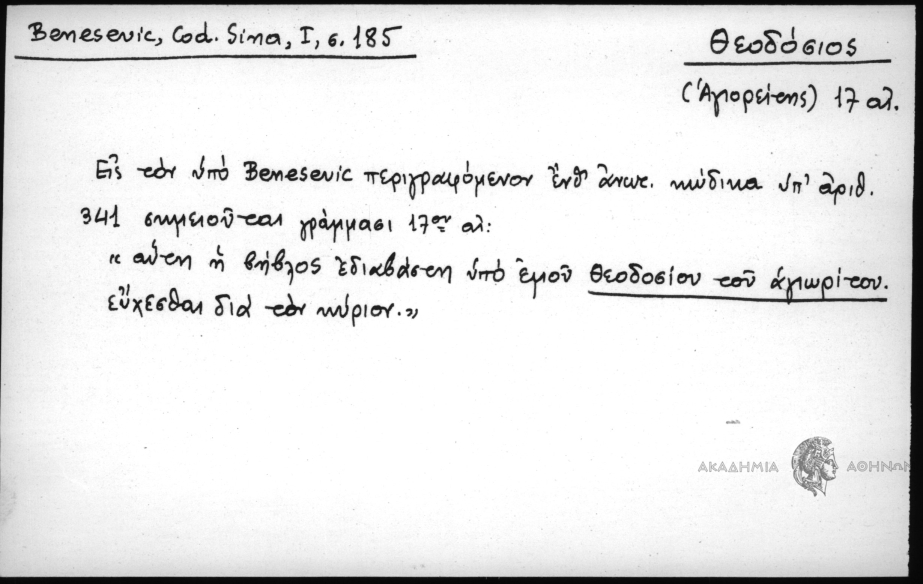 Benesevic, Cod. Sina, I, σ. 185
Θεοδόσιος
(Ἁγιορείτης) 17 αἰ.
Εἰς τὸν ὑπό Benesevic περιγραφόμενον ἔνθ' ἀνωτ. κώδικα ὑπ' ἀριθ.
341 σημειοῦται γράμμασι 17ου αἰ:
« αὔτη ἡ βήβλος ἐδιαβάστη ὑπό ἐμοῦ Θεοδοσίου τοῦ ἁγιωρίτου.
εὔχεσθαι διά τὸν κύριον.»
ΑΚΑΔΗΜΙΑ ΑΘΗΝΩΝ